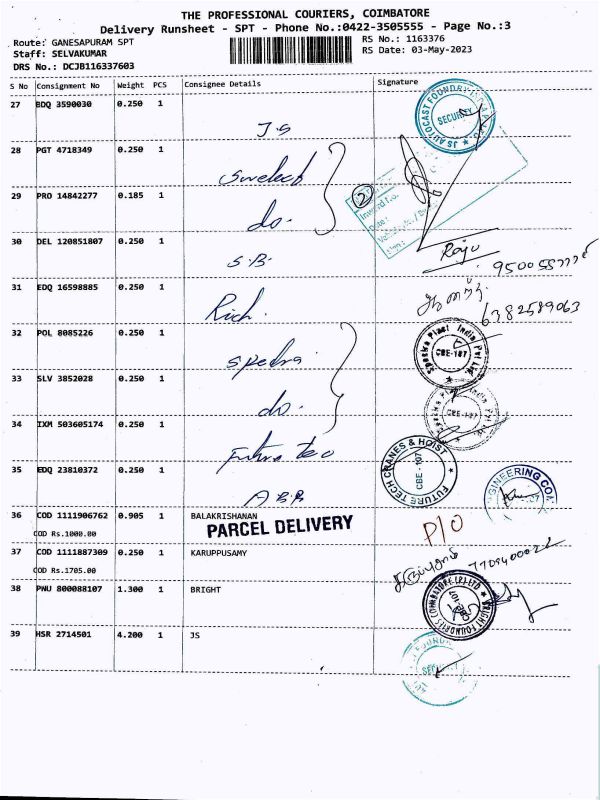 THE PROFESSIONAL COURIERS, COIMBATORE
Delivery Runsheet - SPT - Phone No.:0422-3505555 - Page No.:3
Route: GANESAPURAM SPT
RS No.: 1163376
Staff: SELVAKUMAR
RS Date: 03-May-2023
DRS No.: DCJB116337603
S No Consignment No Weight PCS Consignee Details Signature
27 BDQ 3590030 0.250 1
J.S
JS AUTOCAST FOUNDRY
SECURITY
28 PGT 4718349 0.250 1
29 PRO 14842277 0.185 1
do.
2
30 DEL 120851807 0.250 1
S.B.
Raju
31 EDQ 16598885 0.250 1
Rich.
6382589063
32 POL 8085226 0.250 1
Spectra Plast India Pvt Ltd.
CBE-107
33 SLV 3852028 0.250 1
do.
CBE-107
34 IXM 503605174 0.250 1
Future Tec
FUTURE TECH CRANES & HOIST
CBE - 107
35 EDQ 23810372 0.250 1
A.B.R
36 COD 1111906762 0.905 1 BALAKRISHANAN
COD Rs.1000.00
PARCEL DELIVERY
P/O
37 COD 1111887309 0.250 1 KARUPPUSAMY
COD Rs.1705.00
38 PNU 800088107 1.300 1 BRIGHT
BRIGHT FOUNDRIES COIMBATORE (P) LTD
39 HSR 2714501 4.200 1 JS